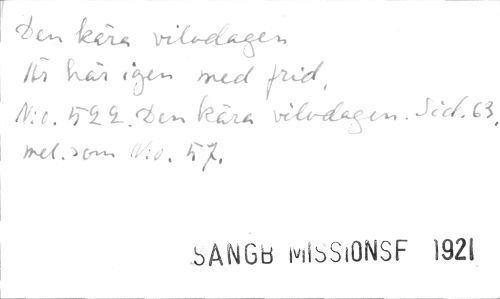 Den kära vilodagen
Är här igen med frid,
N:o. 522. Den kära vilodagen. Sid. 63,
mel. som N:o. 57.
SANGB MISSIONSF 1921